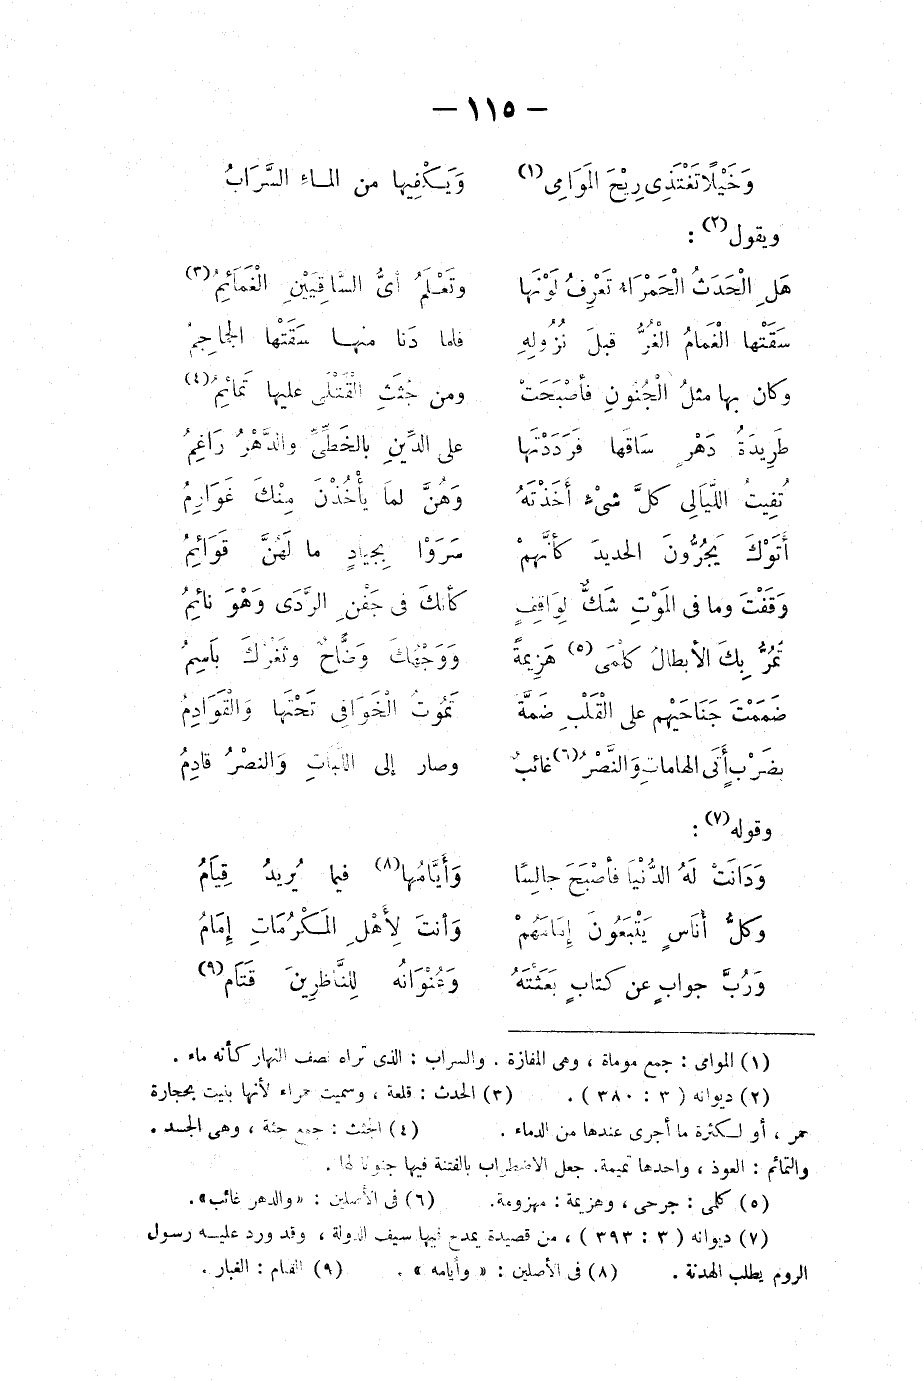 — ١١٥ —
وَخَيْلًا تَغْتَذِى رِيْحَ المَوَامِى(١) وَيَكْفِيها من المـاءِ السَّرَابُ
ويقول(٢) :
هَلِ الْحَدَثُ الْحَمْرَاء تَعْرِفُ لَوْنَها وتَعْلَمُ أىُّ السَّاقِيَيْنِ الْغَمَائِمُ(٣)
سَقَتْها الْغَمامُ الْغُرُّ قبلَ نُزُولِهِ فلما دَنا منهـا سَقَتْها الجماجِمُ
وكان بها مثلُ الْجُنونِ فأصْبَحَتْ ومن جُثَثِ الْقَتْلَى عليها تَمائِمُ(٤)
طَرِيدَةُ دَهْرٍ سَاقَها فَرَدَدْتَها على الدِّينِ بالخَطِّىِّ والدَّهْرُ رَاغِمُ
تُفِيتُ اللَّيَالِى كلَّ شىْءٍ أَخَذْتَهُ وَهُنَّ لماَ يأْخُذْنَ مِنْكَ غَوَارِمُ
أَتَوْكَ يَجُرُّونَ الحديدَ كأنَّهمْ سَرَوْا بِجِيادٍ ما لَهُنَّ قَوَائِمُ
وَقَفْتَ وما فى المَوْتِ شَكٌّ لِوَاقِفٍ كأنكَ فى جَفْنِ الرَّدَى وَهْوَ نائِمُ
تَمُرُّ بِكَ الأبطالُ كَلْمَى(٥) هَزِيمةً وَوَجْهُكَ وَضَّاحٌ وثَغْرُكَ باَسِمُ
ضَمَمْتَ جَنَاحَيْهِم على القَلْبِ ضَمَّةً تَمُوتُ الْخَوَافِى تَحْتَها وَالْقَوَادِمُ
بضَرْبٍ أَتَى الهاماتِ وَالنَّصْرُ(٦) غائبٌ وصار إلى اللَّبَاتِ وَالنصْرُ قادِمُ
وقوله(٧) :
وَدَانَتْ لَهُ الدُّنْيَا فأصْبَحَ جالِسًا وَأَيَّامُها(٨) فيما يُرِيدُ قِيَامُ
وكلُّ أُنَاسٍ يَتْبَعُونَ إمَامَهُمْ وَأنتَ لِأَهْلِ المَكْرُمَاتِ إمَامُ
وَرُبَّ جوابٍ عن كتابٍ بَعَثْتَهُ وَعُنْوَانُه لِلنَّاظرِينَ قَتَام(٩)
(١) الموامى : جمع موماة ، وهى المفازة . والسراب : الذى تراه نصف النهار كأنه ماء .
(٢) ديوانه ( ٣ : ٣٨٠ ) . (٣) الحدث : قلعة ، وسميت حمراء لأنها بنيت بحجارة
حمر ، أو لكثرة ما أجرى عندها من الدماء . (٤) الجثث : جمع جثة ، وهى الجسد .
والتمائم : العوذ ، واحدها تميمة. جعل الاضطراب بالفتنة فيها جنونا لها .
(٥) كلمى : جرحى ، وهزيمة : مهزومة. (٦) فى الأصلين : «والدهر غائب».
(٧) ديوانه ( ٣ : ٣٩٣ ) ، من قصيدة يمدح فيها سيف الدولة ، وقد ورد عليـه رسول
الروم يطلب الهدنة . (٨) فى الأصلين : « وأيامه » . (٩) القتام : الغبار .